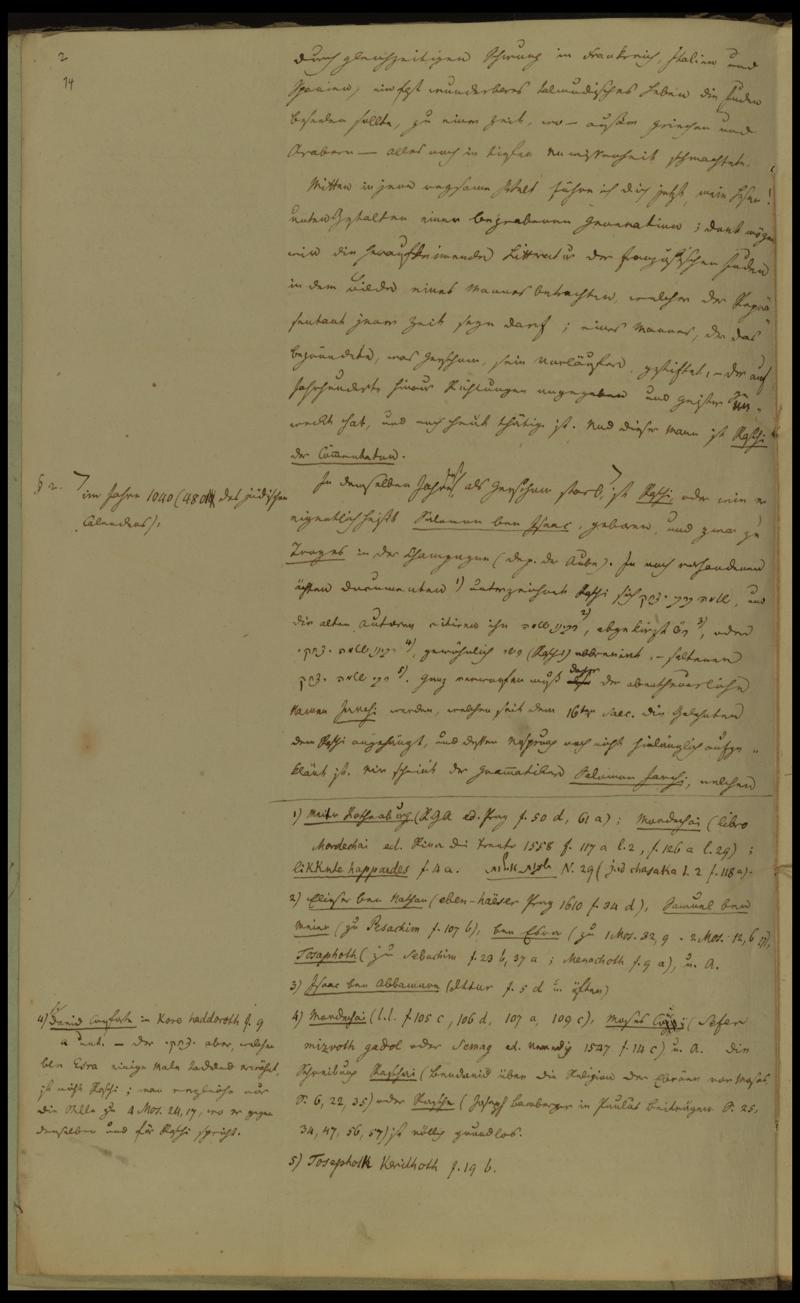 2
14
durch gleichzeitigen Schwung in Frankreich, Italien und
Spanien, ein fast wunderbares talmudisches Leben die Juden
beseelen sollte, zu einer Zeit, wo — außer Griechen und
Arabern — alles noch in tiefer Unwissenheit schmachtete.
Mitten in jene regsame Welt führe ich dich jetzt, mein Leser!
unter Gestalten einer begrabenen Generation; dort mögen
wir die heraufkeimende Litteratur der französischen Juden
in dem Bilde eines Mannes betrachten, welcher der Reprä-
sentant jener Zeit seyn darf; eines Mannes, der das
begründete, was Gerschom, sein Vorläufer, gestiftet, – der auf
Jahrhunderte hinaus Richtungen angegeben und Geister
weckt hat, und noch heut thätig ist. Und dieser Mann ist Raschi
der Commentator.
§ 2. im Jahre 1040 (480 des jüdischen
Calenders),
In demselben Jahre, als Gerschom starb, ist Raschi oder wie er
eigentlich heißt Salomon ben Isaac, geboren, und zwar zu
Troyes in der Champagne (dep. de Aube). In noch vorhandenen
ächten Documenten 1) unterzeichnet Raschi sich שלמה ברבי יצחק, und
die alten Autoren citiren ihn רבינו שלמה 2), abgekürzt 3), oder
רבינו שלמה ב״ר יצחק 4), gewöhnlich רשי (Raschi) abbrevirt, – seltener
רבי שלמה יצחק 5). Ganz verworfen muß daher der abentheuerliche
Namen Jarchi werden, welchen seit dem 16ten Saec. die Gelehrten
dem Raschi angehängt, und dessen Ursprung noch nicht hinlänglich aufge-
klärt ist. Mir scheint der Grammatiker Salomon Jarchi, welchen
1) Meir Rothenburg (RGA ed. Prag f. 50 d, 61 a); Mordechai (libro
Mordechai ed. Riva di Trento 1558 f. 117 a l. 2, f. 126 a l. 29);
likkute happardes f. 4 a. N. 29 (jad chasaka t. 2 f. 118 a).
2) Elieser ben Nathan (eben-haëser Prag 1610 f. 34 d), Samuel ben
Meier (zu Pesachim f. 107 b), ben Esra (zu 1 Mos. 32, 9 . 2 Mos. 12, 6
Tosaphoth (zu Sebachim f. 23 b, 37 a; Menachoth f. 9 a), u. A.
3) Isaac ben Abbamare (Ittur f. 5 d u. öfter)
4) Mordechai (l.l. f. 105 c, 106 d, 107 a, 109 c), Moses (Sefer
mizvoth gadol oder Semag ed. Venedig 1547 f. 114 c) u. A. Die
Schreibung Raschai (Bendavid über die Religion der Ebräer vor Moses,
S. 6, 22, 35) oder Rasche (Joseph Bamberger in Paulus Beiträgen S. 25,
34, 47, 56, 57) ist völlig grundlos.
5) Tosephoth Kerithoth f. 19 b.
4) David Conforte in Kore haddoroth f. 9
a unt. – der aber, welchen
ben Esra einige Male tadelnd erwähnt,
ist nicht Raschi; man vergleiche nur
die Stelle zu 4 Mos. 24, 17, wo er gegen
denselben und für Raschi spricht.